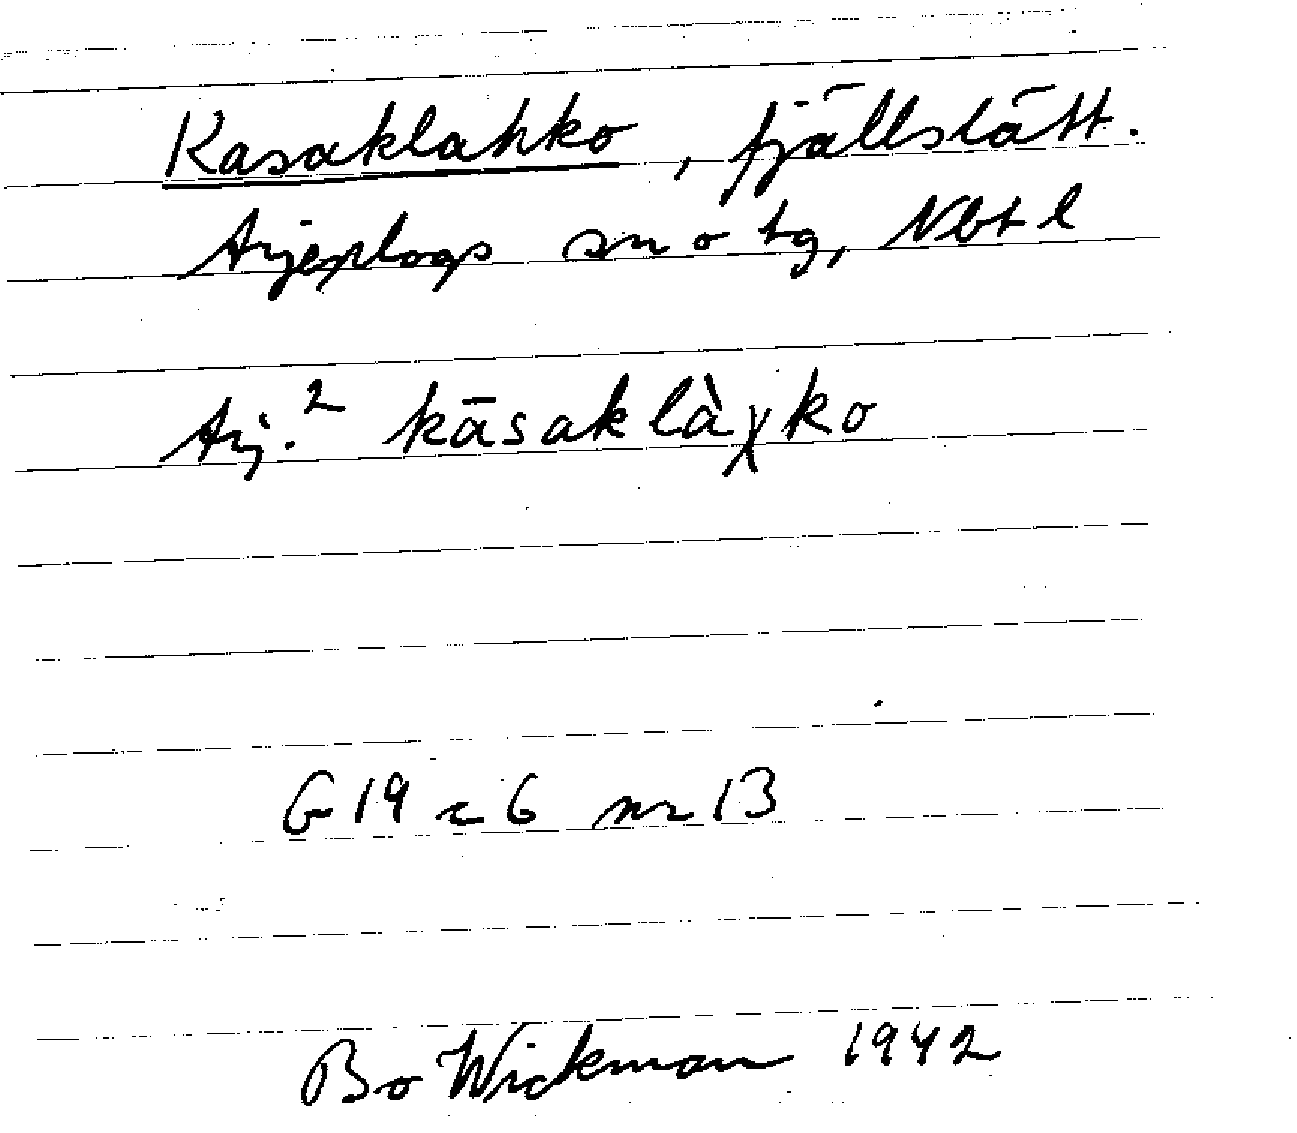 Kasaklahko, fjällslätt.
Arjeplogs sn o tg, Nbt l
Arj.² kāsaklàχko
G 19 c 6 nr 13
Bo Wickman 1942